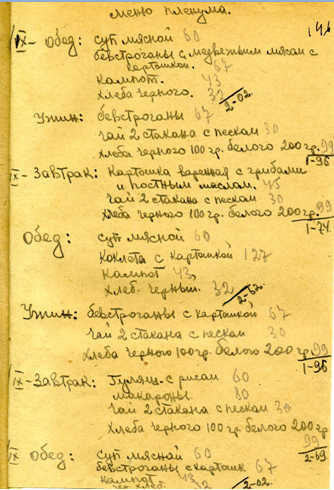 меню пленума.
146
IX - Обед: суп мясной 60
бевстроганы с медвежьим мясом с
картошкой. 67
Кампот. 43
Хлеба черного. 32
2-02.
Ужин: бевстроганы 67
чай 2 стакана с песком 30
хлеба черного 100 гр. белого 200 гр. 99
1-96
IX - Завтрак: Картошка варенная с грибами
и постным маслом. 45
чай 2 стакана с песком 30
хлеба черного 100 гр. белого 200 гр. 99
1-74
Обед: суп мясной 60
Коклета с картошкой 127
Кампот 43
хлеб. черный. 32
2-62.
Ужин: бевстроганы с картошкой 67
чай 2 стакана с песком 30
хлеба черного 100 гр. белого 200 гр. 99
1-96
IX - Завтрак: Гулянц. с рисом 60
макароны 80
чай 2 стакана с песком 30
Хлеба черного 100 гр. белого 200 гр
99
2-69
IX Обед: суп мясной 60
бевстроганы с картошк 67
кампот 43
хлеб. 32
2-02.